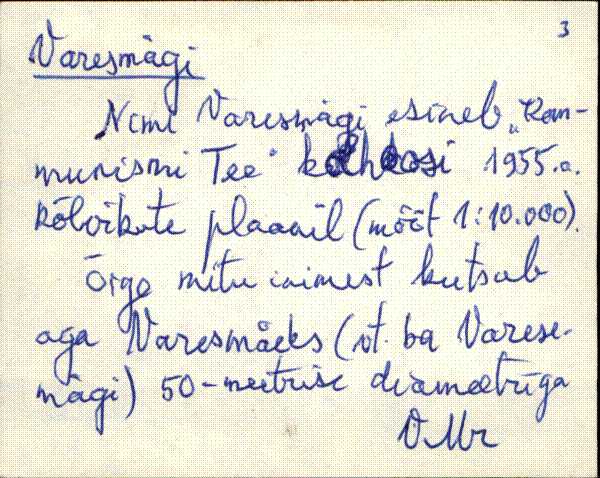 3
Varesmägi
Nimi Varesmägi esineb „Kom-
munismi Tee" kolhoosi 1955.a.
kõlvikute plaanil (mõõt 1:10.000).
Õrgo mitu inimest kutsub
aga Varesmäeks (vt. ka Varese-
mägi) 50-meetrise diameetriga